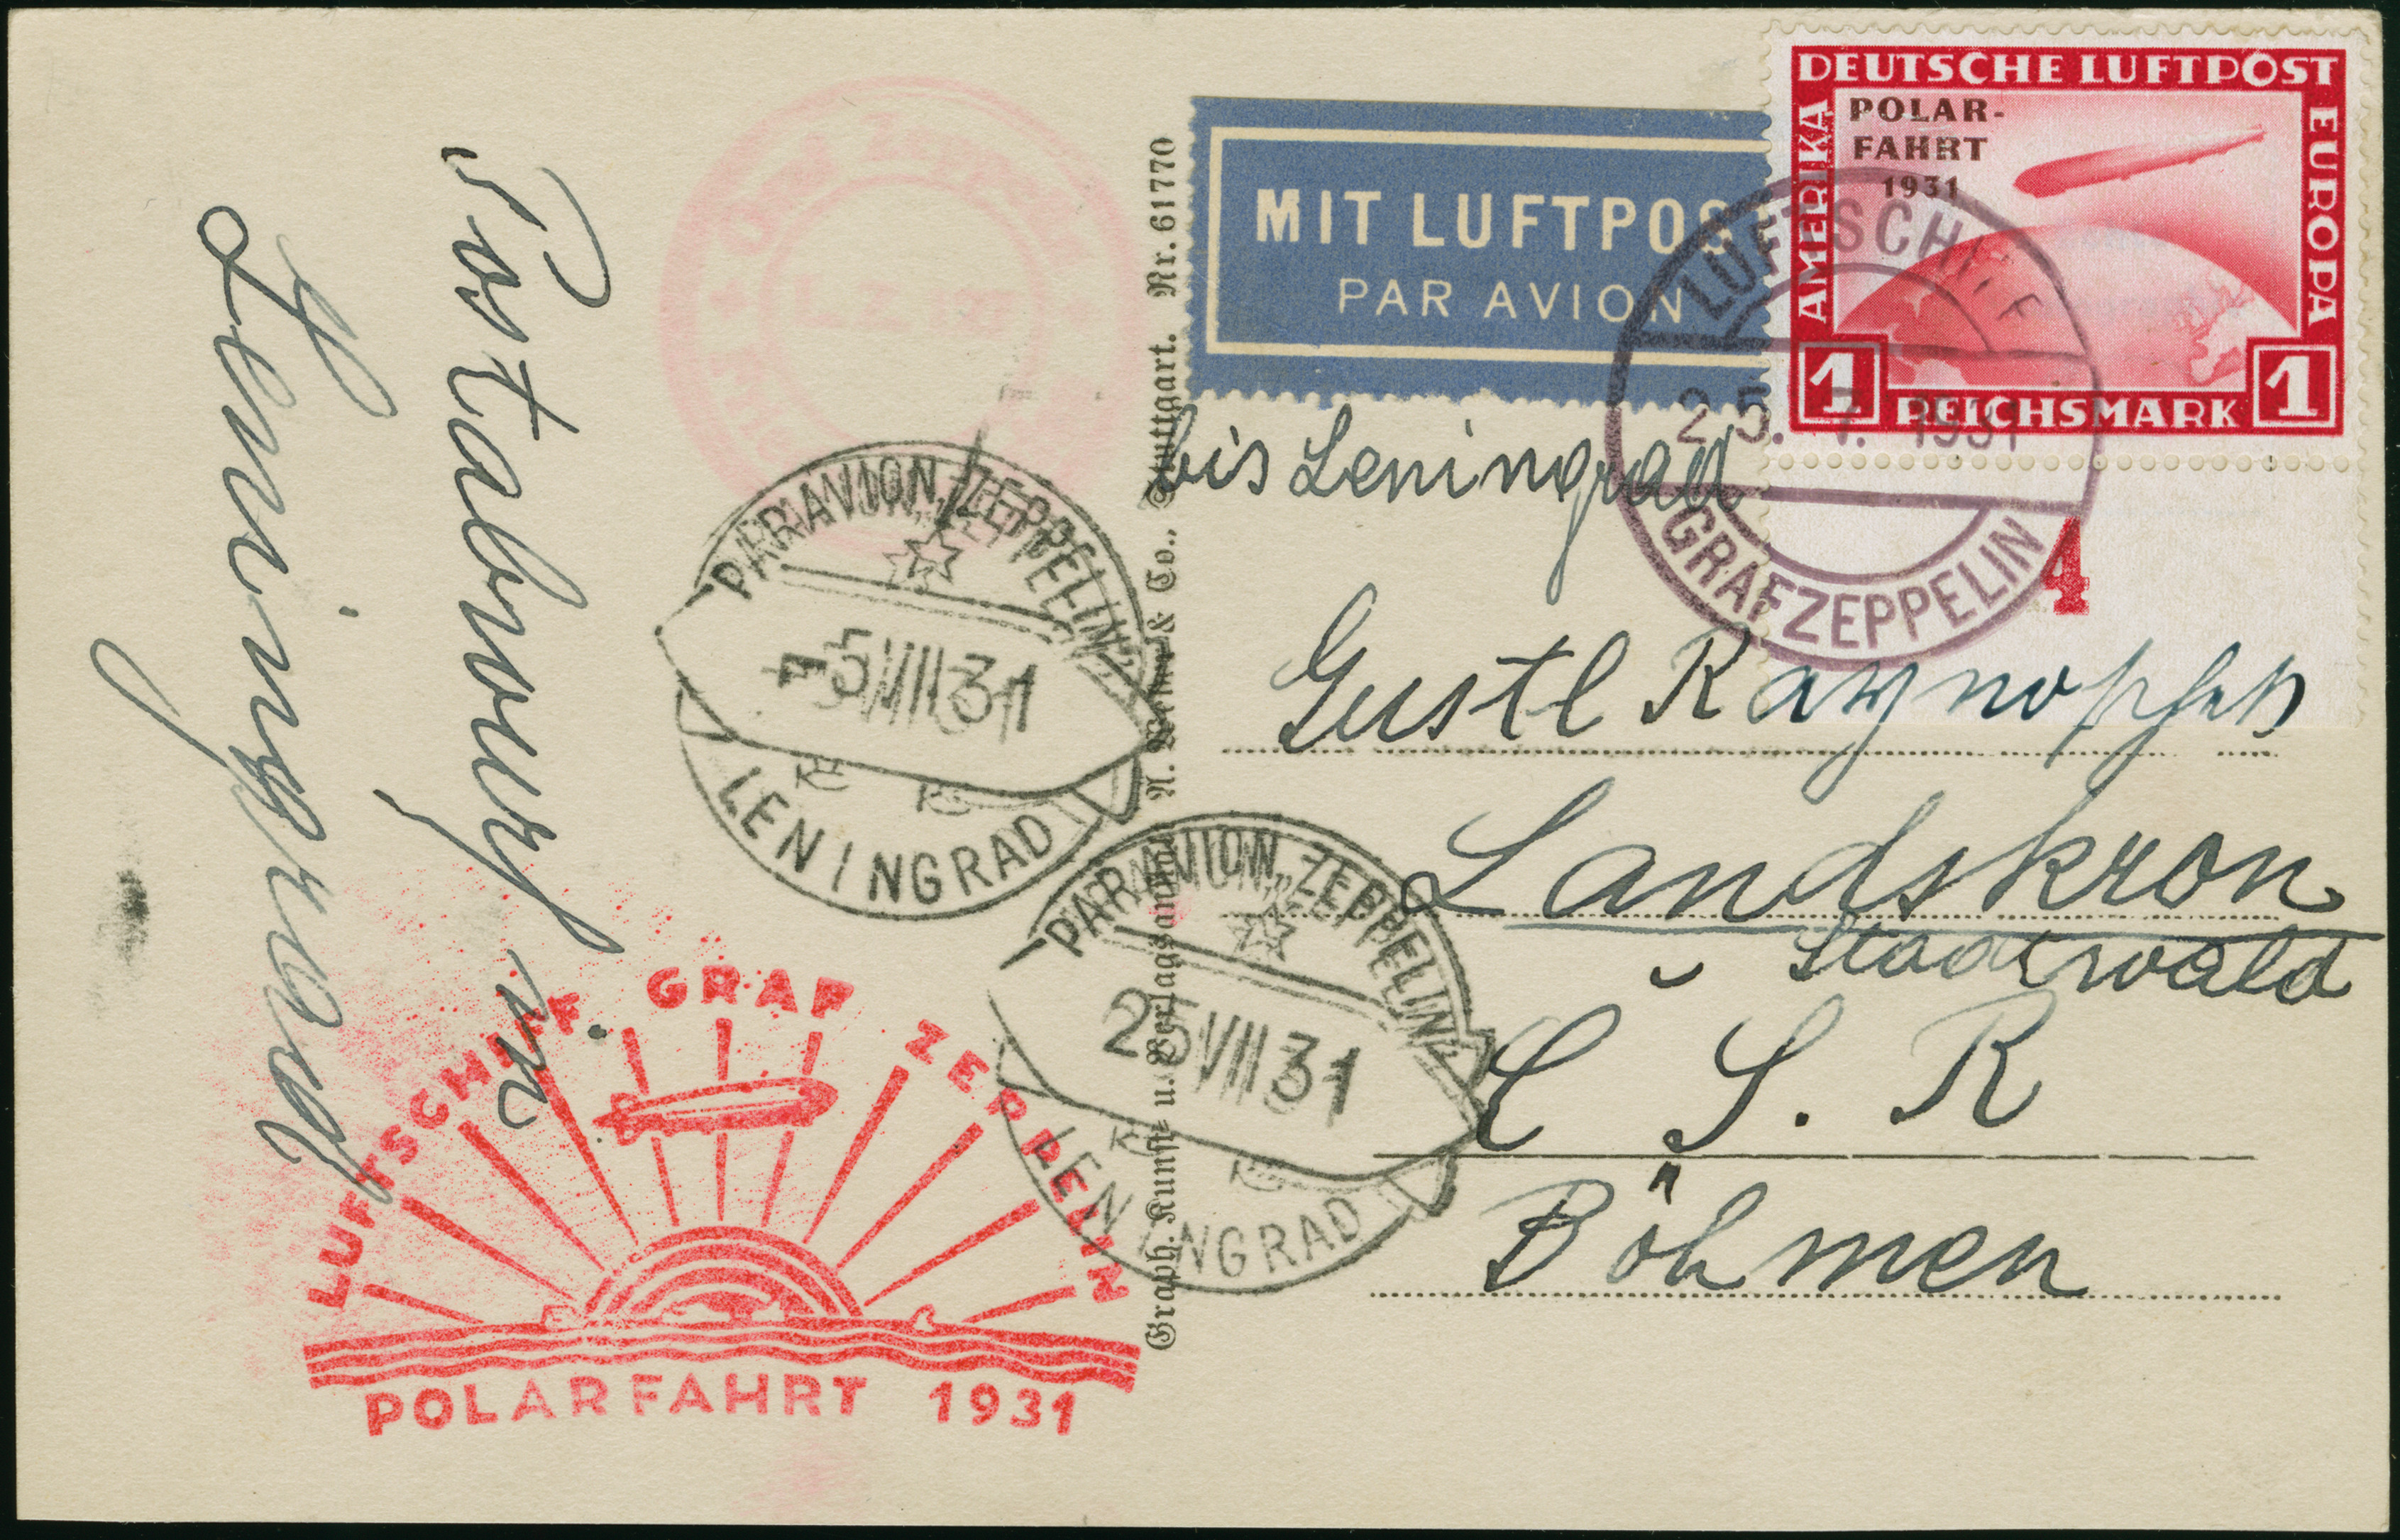 Postabwurf in
Leningrad
Graf Zeppelin
PAR AVION „ZEPPELIN"
-5 VII 31
LENINGRAD
PAR AVION „ZEPPELIN"
25 VII 31
LENINGRAD
LUFTSCHIFF GRAF ZEPPELIN
POLARFAHRT 1931
Graph. Kunst- u. Verlagsanstalt Stuttgart. Nr. 61770
MIT LUFTPOST
PAR AVION
DEUTSCHE LUFTPOST
AMERIKA
EUROPA
POLAR-
FAHRT
1931
1 REICHSMARK 1
LUFTSCHIFF
25. 7. 1931
GRAF ZEPPELIN
4
bis Leningrad
Gustl
Landskron
Stadtwald
C. S. R
Böhmen